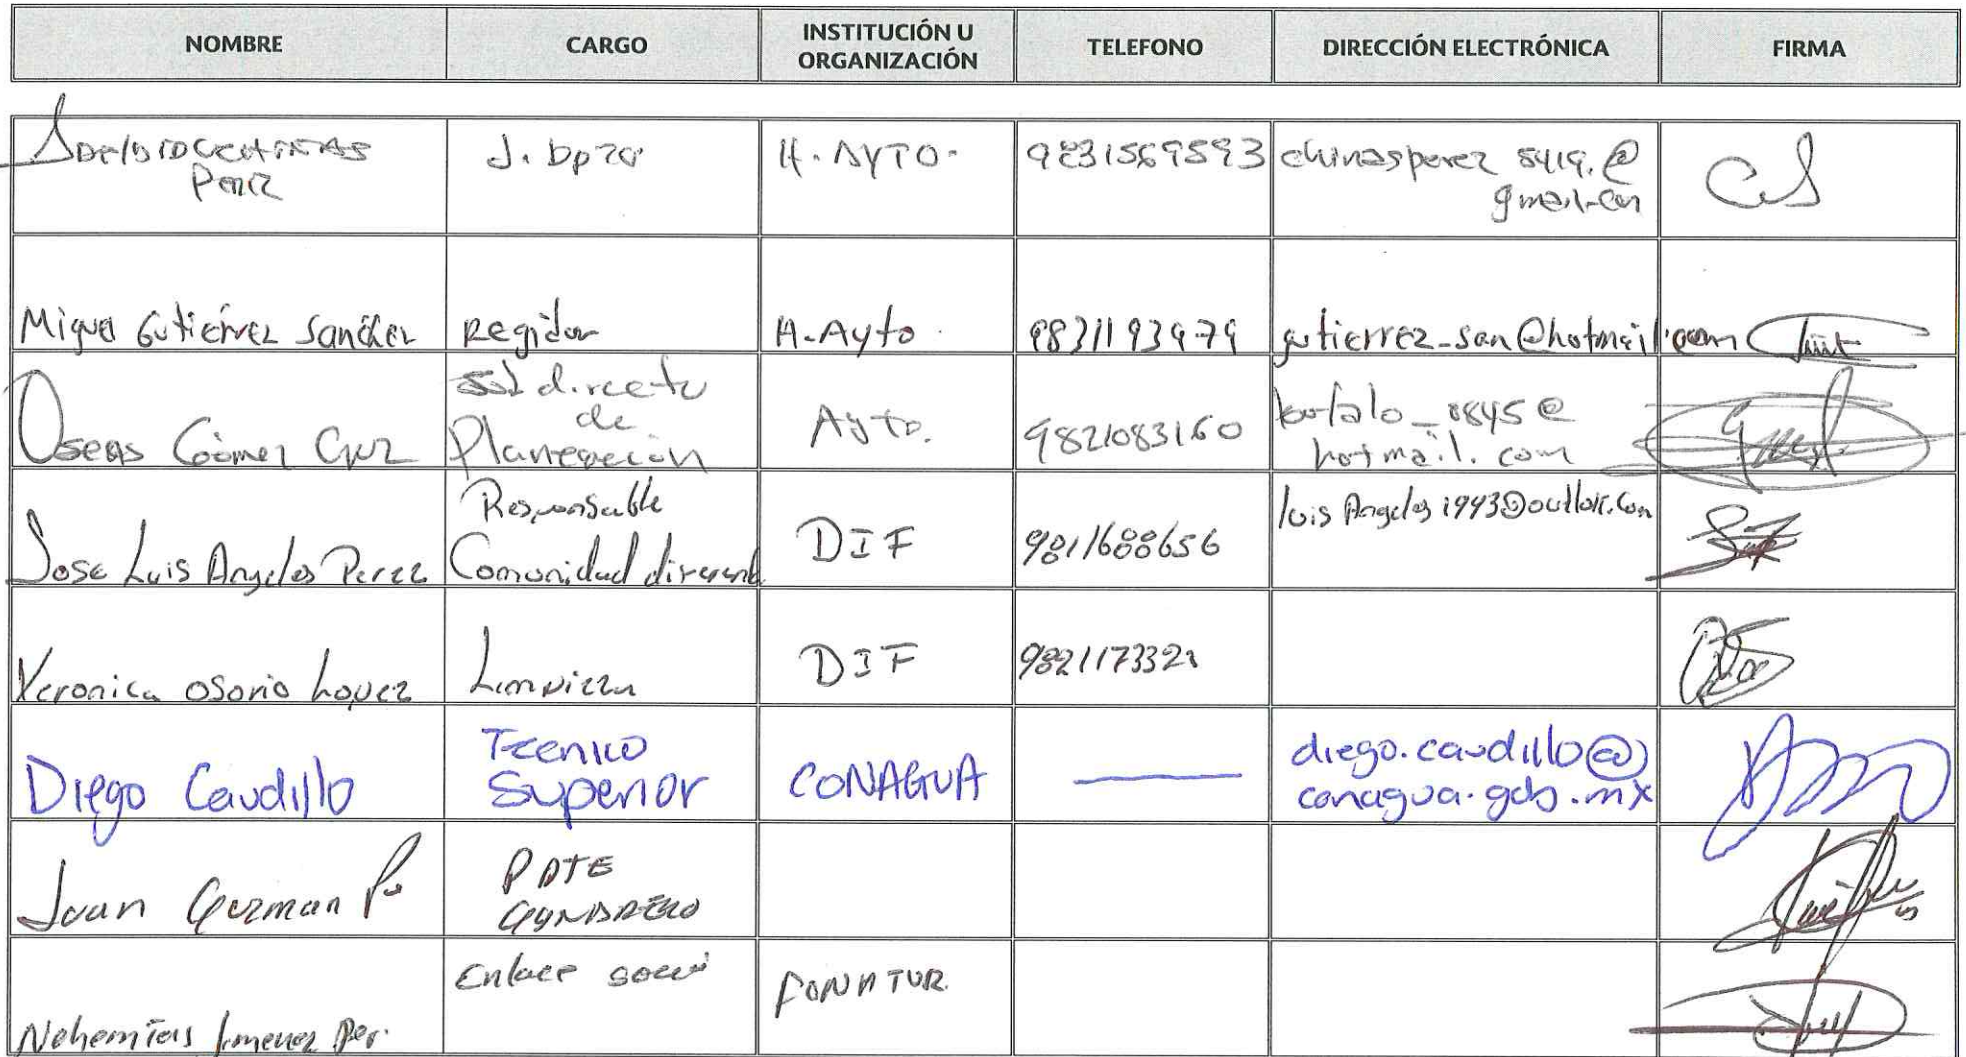 NOMBRE
CARGO
INSTITUCIÓN U
ORGANIZACIÓN
TELEFONO
DIRECCIÓN ELECTRÓNICA
FIRMA
Perez
H. AYTO.
9831569593
chinasperez 5419.@
gmail.com
Miguel Gutiérrez Sanchez
Regidor
H. Ayto.
9831193979
gutierrez_san@hotmail.com
Oseas Gómez Cruz
Sub directo
de
Planeación
Ayto.
9821083160
bufalo_8845@
hotmail.com
Jose Luis Angeles Perez
Responsable
Comunidad diferente
DIF
9811688656
luis Angeles 1993@outlook.com
Veronica Osorio Lopez
Limpieza
DIF
9821173321
Diego Caudillo
Tecnico
Superior
CONAGUA
diego.caudillo@
conagua.gob.mx
Juan Guzman P.
PDTE
GANADERO
Nehemias Jimenez Per.
Enlace social
FONATUR